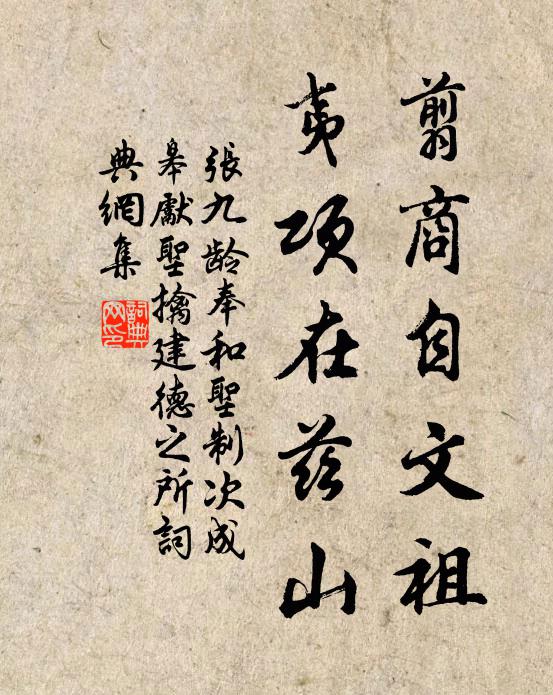 翦商自文祖
夷项在兹山
張九齡奉和聖制次成
皋獻聖擒建德之所詞
典網集
詞典
网印